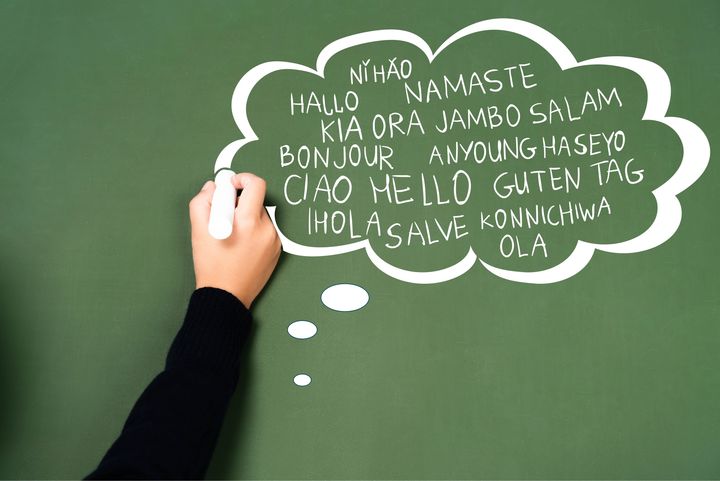 NǏ HǍO NAMASTE
HALLO
KIA ORA JAMBO SALAM
BONJOUR ANYOUNG HASEYO
CIAO HELLO GUTEN TAG
¡HOLA SALVE KONNICHIWA
OLA